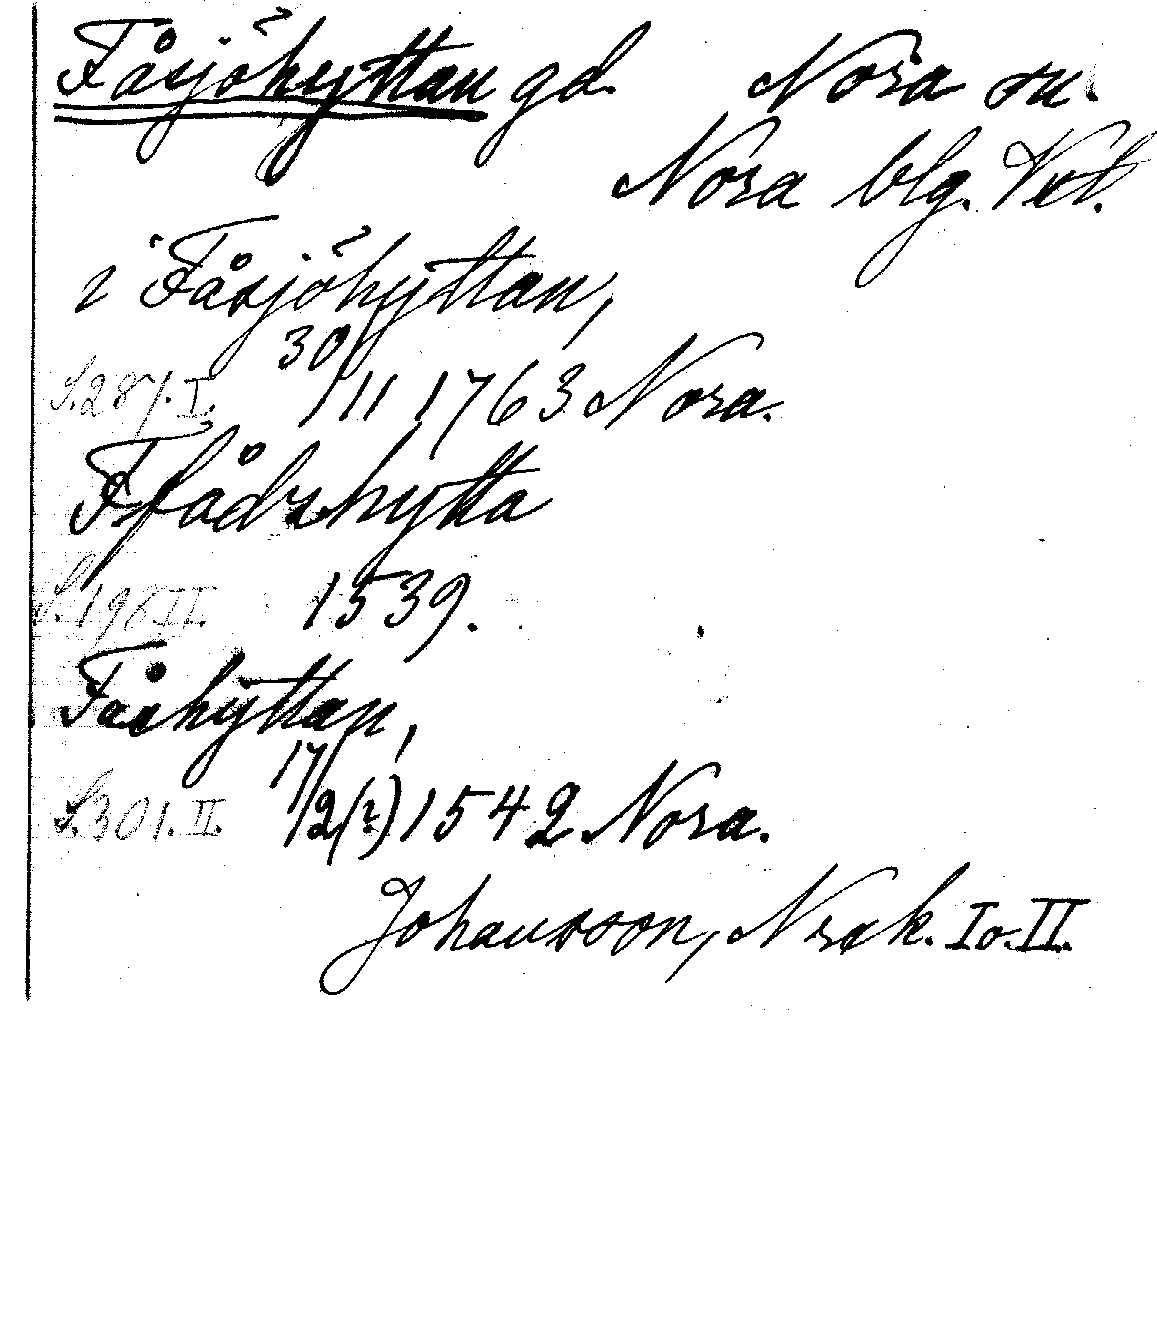 Fåsjöhyttan gd. Nora sn.
Nora blg. Vstl.
i Fåsjöhyttan,
S. 287. I. 30/11 1763 Nora.
Ffådzhytta
S. 198 II. 1539.
Fåshyttan,
S. 301. II. 17/2(?) 1542 Nora.
Johansson, Nrsk. I o. II.